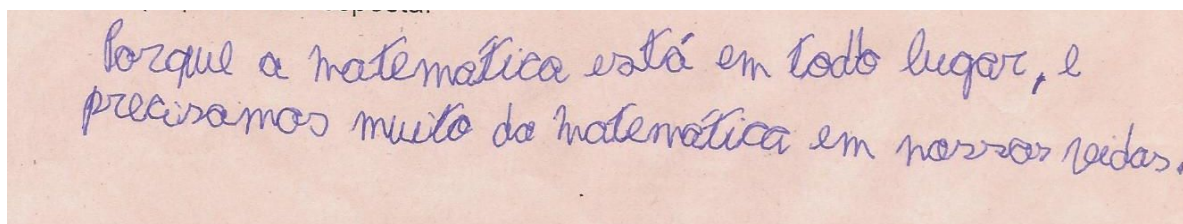 Porque a matemática está em todo lugar, e
precisamos muito da matemática em nossas vidas.